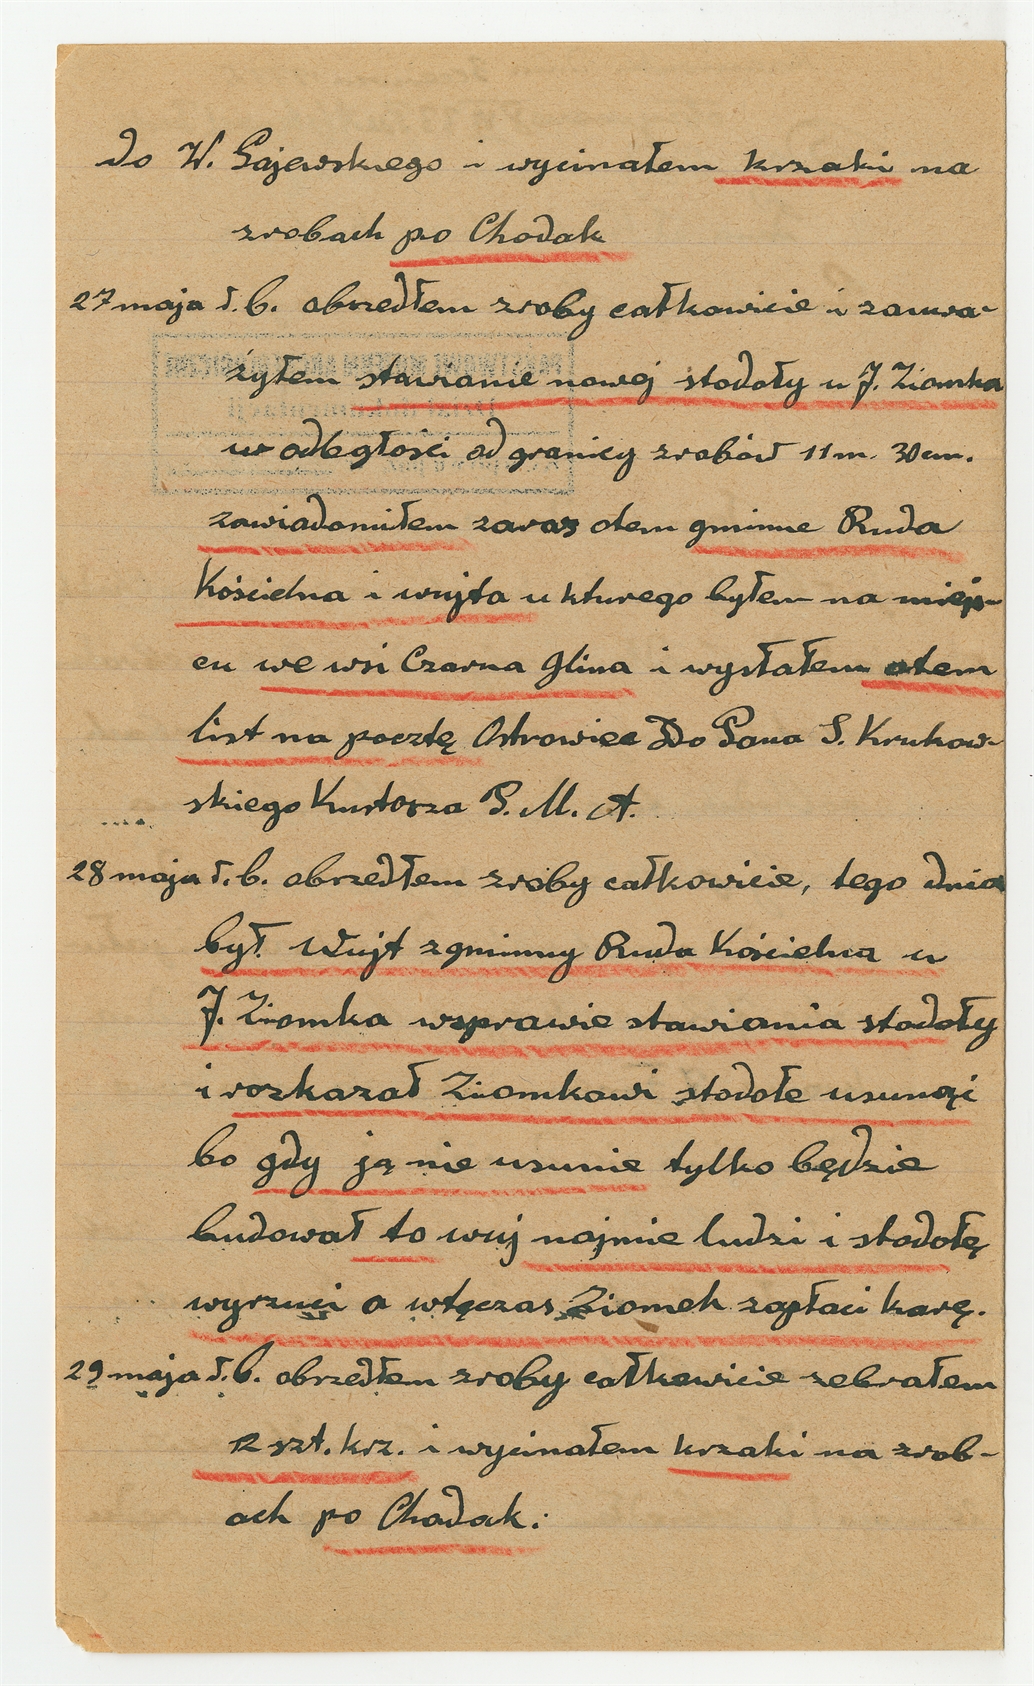 do W. Gajewskiego i wycinałem krzaki na
zrobach po Chodak
27 maja t.b. obszedłem zroby całkowicie i zauwa-
żyłem stawianie nowej stodoły u J. Ziomka
w odległości od granicy zrobów 11 m. 30 cm.
zawiadomiłem zaraz otem gminne Ruda
Kościelna i wujta u kturego byłem na miejs-
cu we wsi Czarna Glina i wysłałem otem
list na pocztę Ostrowiec Do Pana S. Krukow-
skiego Kustorza P. M. A.
28 maja t.b. obszedłem zroby całkowicie, tego dnia
był Wujt zgminny Ruda Kościelna u
J. Ziomka wsprawie stawiania stodoły
i rozkazał Ziomkowi stodołe usunąć
bo gdy ją nie usunie tylko będzie
budował to wuj najmie ludzi i stodołę
wyrzuci a wtęczas Ziomek zapłaci karę.
29 maja t.b. obszedłem zroby całkowicie zebrałem
12 szt. krz. i wycinałem krzaki na zrob-
ach po Chodak.